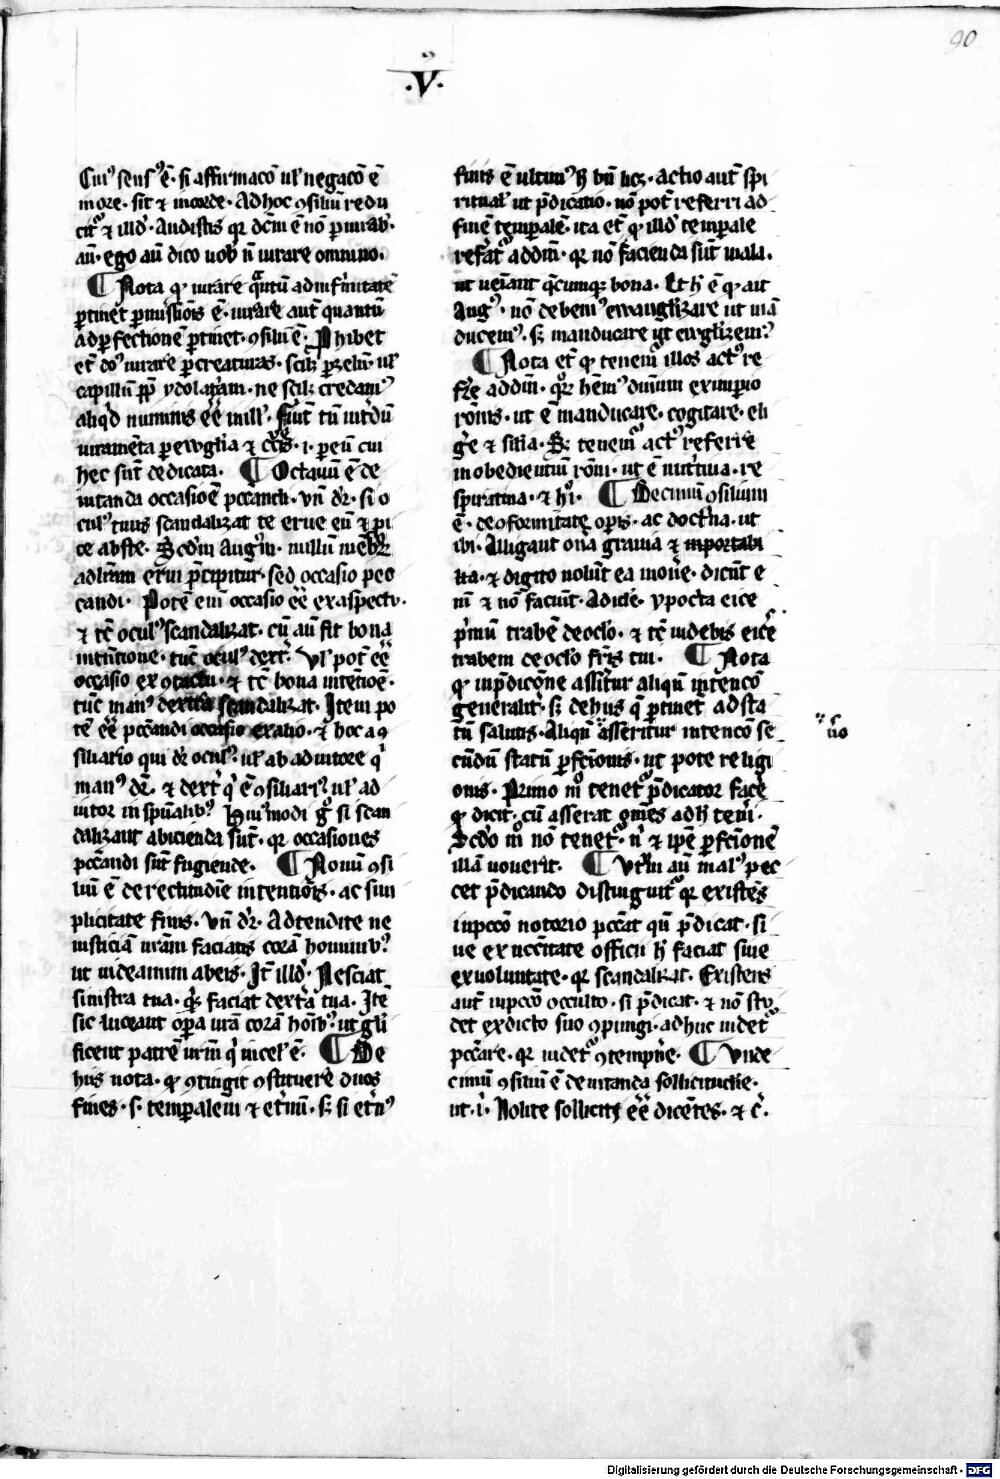 90
.V.
Cui᷒ sens᷒ ē· si affirmacō ul᷒ negacō ē
more· sit ⁊ in corde· Ad hoc ꝯsiliū redu
cit᷒ ⁊ illđ· Audistis qr dc̄m ē nō ꝑiurab᷒·
aū· ego aū dico uob᷒ n̄ iurare omnino·
¶ Nota ꝙ iurare quātū ad infirmitatē
ꝑtinet ꝑmissiōis ē· iurare aut̄ quantū
ad ꝑfectionē ꝑtinet· ꝯsiliū ē· Phibet
et̄ do᷒ iurare ꝑ creaturas· scilꝫ ꝑ celū· ul᷒
capillū ꝓp̄ ydolat᷒am· ne scilꝫ credam᷒
aliq᷒d numinis eē̄ in ill᷒· Fiūt tn̄ int᷒dū
iuram̄ta ꝑ ewglia ⁊ · i· ꝑ eū cui
hec sūt dedicata· ¶ Octauū ē de
uitanda occasiōe pccandi· vn̄ dr᷒· si o
cul᷒ tuus scandalizat te erue eū ⁊ ꝓi
ce abs te· Scdm Aug᷒m· nullū mēbꝝ
ad lr̄am erui p̄cipitur· sed occasio pec
candi· Potē eni occasio eē̄ ex aspectu·
⁊ tc̄ ocul᷒ scandalizat· cū aū fit bona
intn̄tione· tūc ocul᷒ dext᷒· Vl᷒ pot̄ eē̄
occasio ex ꝯtactu· ⁊ tc̄ bona intenc̄oē·
tūc man᷒ dextra scandalizat· Item po
tē eē̄ pccandi occasio ex alio· ⁊ hoc a ꝯ
siliario qui dr̄ ocul᷒· ul᷒ ab adiutore q᷒
man᷒ dr̄· ⁊ dext᷒ q᷒ ē ꝯsiliari᷒ ul᷒ ad
iutor in sp̄ualib᷒ Hui᷒modi g᷒ si scan
dalizant abicienda sūt· qr occasiones
pccandi sūt fugiende· ¶ Nonū ꝯsi
liū ē de rectitudīe intentiōis· ac sim
plicitate finis· Vn̄ dr᷒· Adtendite ne
iusticiā urām faciatis corā hominib᷒
ut uideamini ab eis· It̄ illđ· Nesciat
sinistra tua· q᷒d faciat dext᷒a tua· Ite
sic luceant oꝑa urā corā hoīb᷒ ut gl̄i
ficent patrē urm̄ q᷒ in cel᷒ ē· ¶ De
hiis nota· ꝙ ꝯtingit ꝯstituere duos
fines· s· tempalem ⁊ et᷒nū· sꝫ si et᷒n᷒
finis ē ultim᷒ h᷒ bn̄ licꝫ· Actio aut̄ spi
ritual᷒ ut p̄dicatio· nō pot̄ referri ad
finē tempalē· ita et̄ ꝙ illđ tempale
refrat᷒ ad dm̄· qr nō facienda sūt mala·
ut ueniant q̄cumqꝫ bona· Et h᷒ ē ꝙ ait
Aug᷒· nō debem᷒ ewanglizare ut mā
ducem᷒· sꝫ manducare ut ewglizem᷒
¶ Nota et̄ ꝙ tenem᷒ illos act᷒ re
fr̄e ad dm̄· quꝝ hem᷒ dn̄ium ex imꝑio
rōnis· ut ē manducare· cogitare· eli
g᷒e ⁊ silia· Sꝫ tenem᷒ act᷒ referre
inobedientiū rōni· ut ē nut᷒tiua· re
spiratiua· ⁊ h᷒i· ¶ Decimū ꝯsilium
ē· de ꝯformitate oꝑis· ac doct᷒na· ut
ibi· Alligant onā grauia ⁊ inportabi
lia· ⁊ digito nolūt ea mou᷒e· dicūt e
ni ⁊ nō faciūt· Ad idē· ypocta eice
p᷒mū trabē de oclo· ⁊ tc̄ uidebis eic᷒e
trabem de oclo fr̄is tui· ¶ Nota
ꝙ in p̄dicōne assit᷒tur aliqn̄ intencō
generalit᷒· sꝫ de hiis q̄ ꝑtinet᷒ ad sta
tū salutis· Aliqn̄ asseritur intencō se
cūdū statū ꝑfcionis· ut pote religi
onis· Primo m᷒ tenet᷒ p̄dicator fac᷒e
ꝙ dicit· cū asserat om̄es ad h᷒ teni᷒·
Scd᷒o m᷒ nō tenet᷒· n᷒ ⁊ ip̄e ꝑfcionē
illā uouerit· ¶ Vtrm aū mal᷒ pec
cet p̄dicando distinguit᷒ qr existēs
in pccō notorio pccat qn̄ p̄dicat· si
ue ex ncc̄itate officii h᷒ faciat siue
ex uoluntate· qr scandalizat· Existens
aut̄ in pccō occulto· si p̄dicat· ⁊ nō stu
det ex dicto suo ꝯpungi· adhuc uidet᷒
pccare· qr uidet᷒ ꝯtempn᷒e· ¶ Vnde
cimū ꝯsiliū ē de uitanda sollicitudīe·
ut· i᷒· Nolite solliciti eē̄ dicētes· ⁊ c᷒·
uo
Digitalisierung gefördert durch die Deutsche Forschungsgemeinschaft - DFG